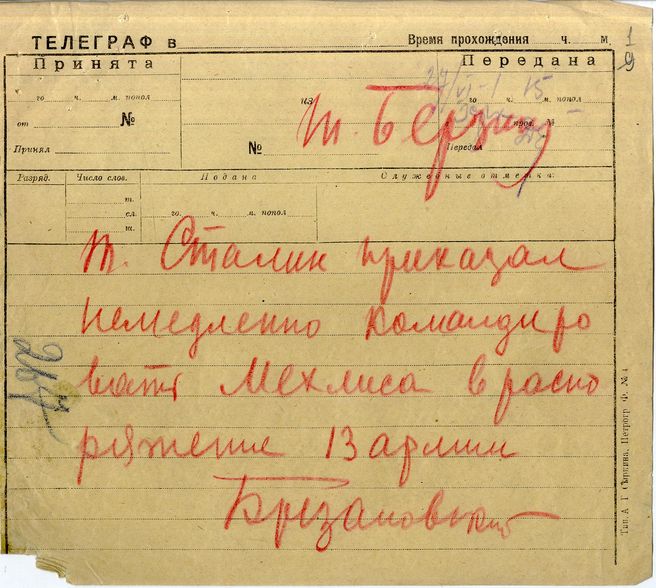 ТЕЛЕГРАФ в
Время прохождения ч. м.
1
9
Принята
Передана
го ч. м. попол
из
го ч. м. попол
от №
т. Берзину
Принял
№
Передал
Разряд.
Число слов.
Подана
Служебные отметки:
т.
сл.
го. ч. м. попол
т. Сталин приказал
немедленно командиро
вать Мехлиса в распо
ряжение 13 армии
Брезановский
Тип. А. Г. Сыркина, Петрогр. Ф. № 4